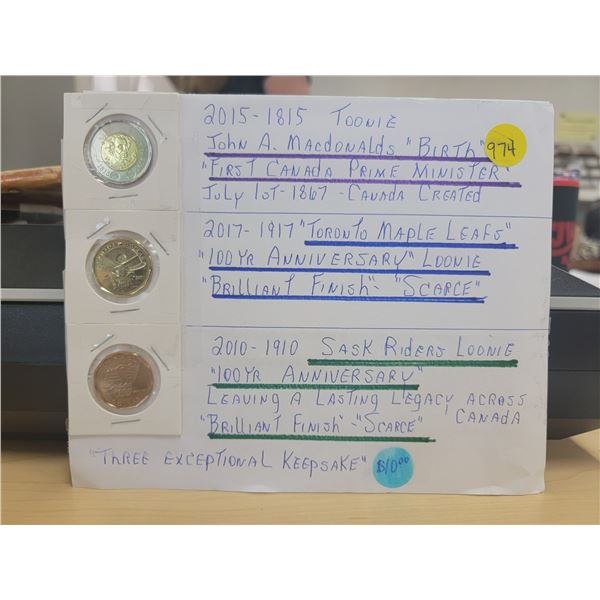 2015-1815 TOONIE
JOHN A. MACDONALDS "BIRTH"
974
"FIRST CANADA PRIME MINISTER"
JULY 1ST-1867 - CANADA CREATED
2017-1917 "TORONTO MAPLE LEAFS"
"100YR ANNIVERSARY" LOONIE
"BRILLIANT FINISH" - "SCARCE"
2010-1910 SASK RIDERS LOONIE
"100YR ANNIVERSARY"
LEAVING A LASTING LEGACY ACROSS
CANADA
"BRILLIANT FINISH" - "SCARCE"
"THREE EXCEPTIONAL KEEPSAKE"
$10.00